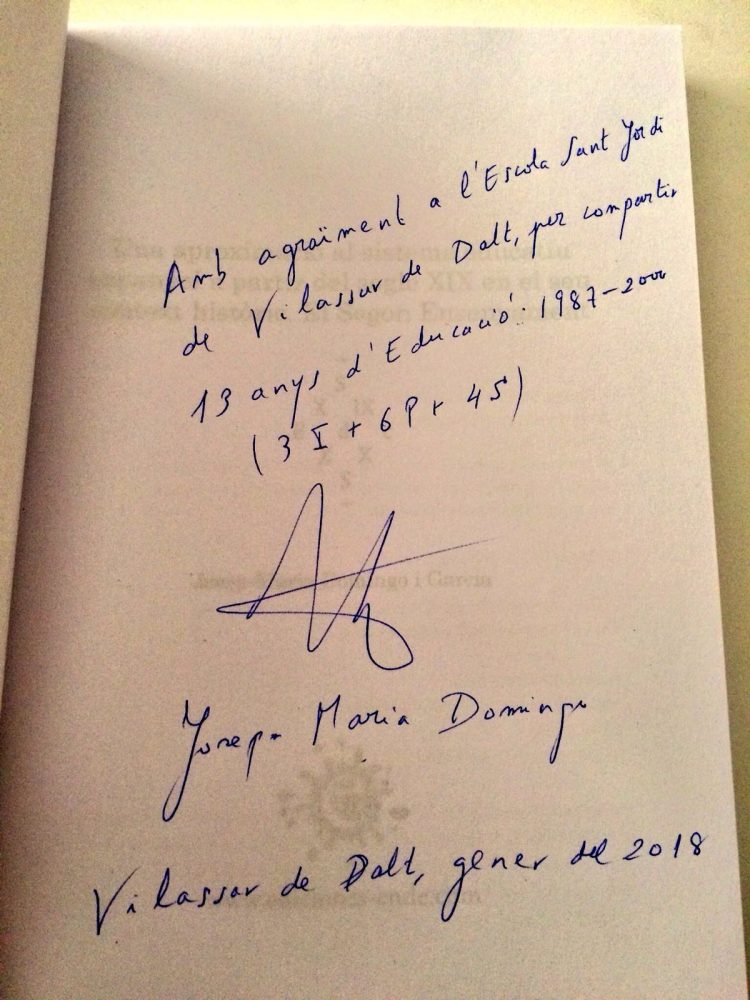 Amb agraïment a l'Escola Sant Jordi
de Vilassar de Dalt, per compartir
13 anys d'Educació 1987-2000
(3 I + 6 P + 4 S)
Josep Maria Domingo
Vilassar de Dalt, gener del 2018
Una aproximació al sistema educatiu
a partir del segle XIX en el seu
històric. El Segon Ensenyament
Josep Maria Domingo i Garcia